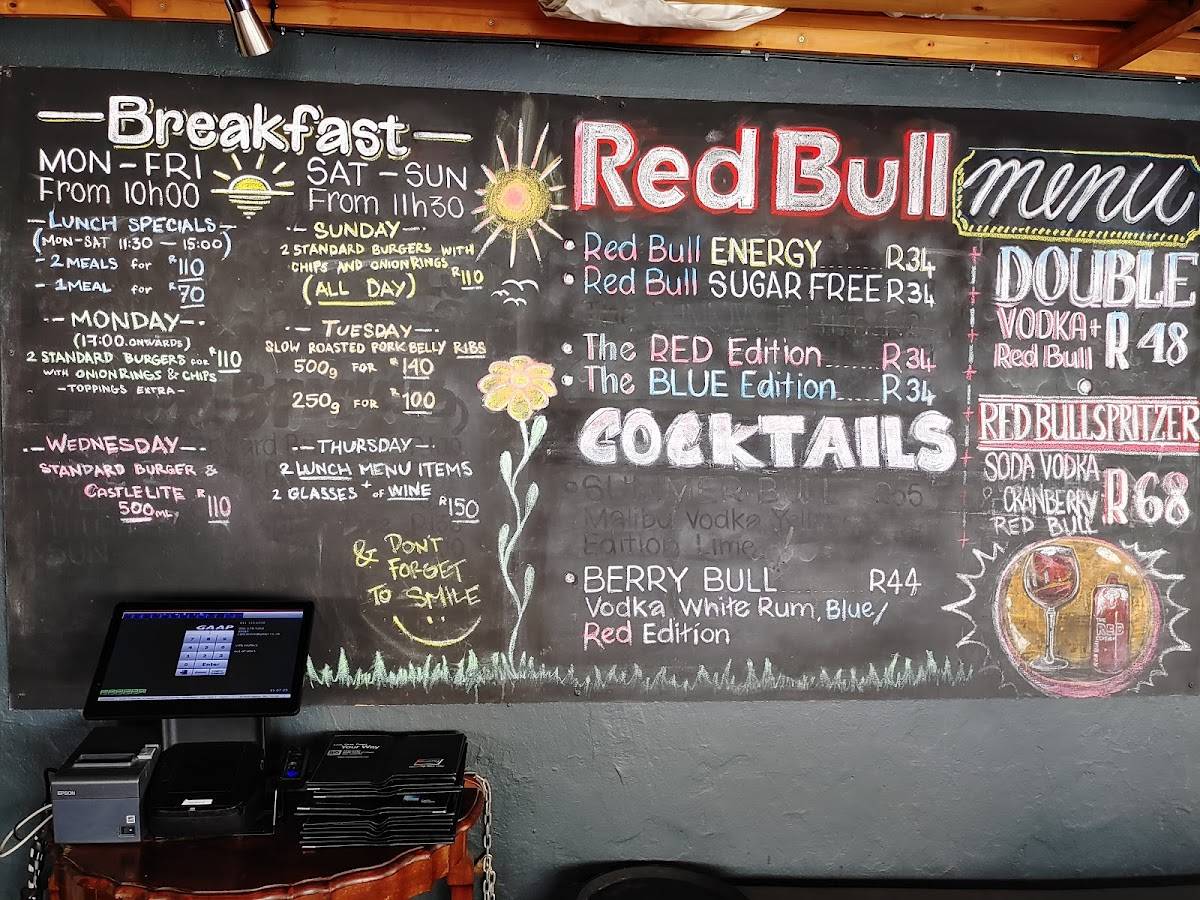 Breakfast
MON-FRI
From 10h00
SAT-SUN
From 11h30
- LUNCH SPECIALS -
(MON-SAT 11:30 - 15:00)
- 2 MEALS for R110
- 1 MEAL for R70
-- SUNDAY --
2 STANDARD BURGERS WITH
CHIPS AND ONION RINGS R110
(ALL DAY)
-- MONDAY --
(17:00 ONWARDS)
2 STANDARD BURGERS FOR R110
WITH ONION RINGS & CHIPS
- TOPPINGS EXTRA -
-- TUESDAY --
SLOW ROASTED PORK BELLY RIBS
500g FOR R140
250g FOR R100
-- WEDNESDAY --
STANDARD BURGER &
CASTLE LITE R110
500ML
-- THURSDAY --
2 LUNCH MENU ITEMS
+
2 GLASSES OF WINE
R150
& DON'T
FORGET
TO SMILE
Red Bull menu
Red Bull ENERGY R34
Red Bull SUGAR FREE R34
The RED Edition R34
The BLUE Edition R34
COCKTAILS
Malibu Vodka
Edition Lime
BERRY BULL R44
Vodka, White Rum, Blue/
Red Edition
DOUBLE
VODKA +
Red Bull R48
RED BULL SPRITZER
SODA VODKA
CRANBERRY
RED BULL
R68
THE
RED
GAAP
Enter
EPSON
Your Way